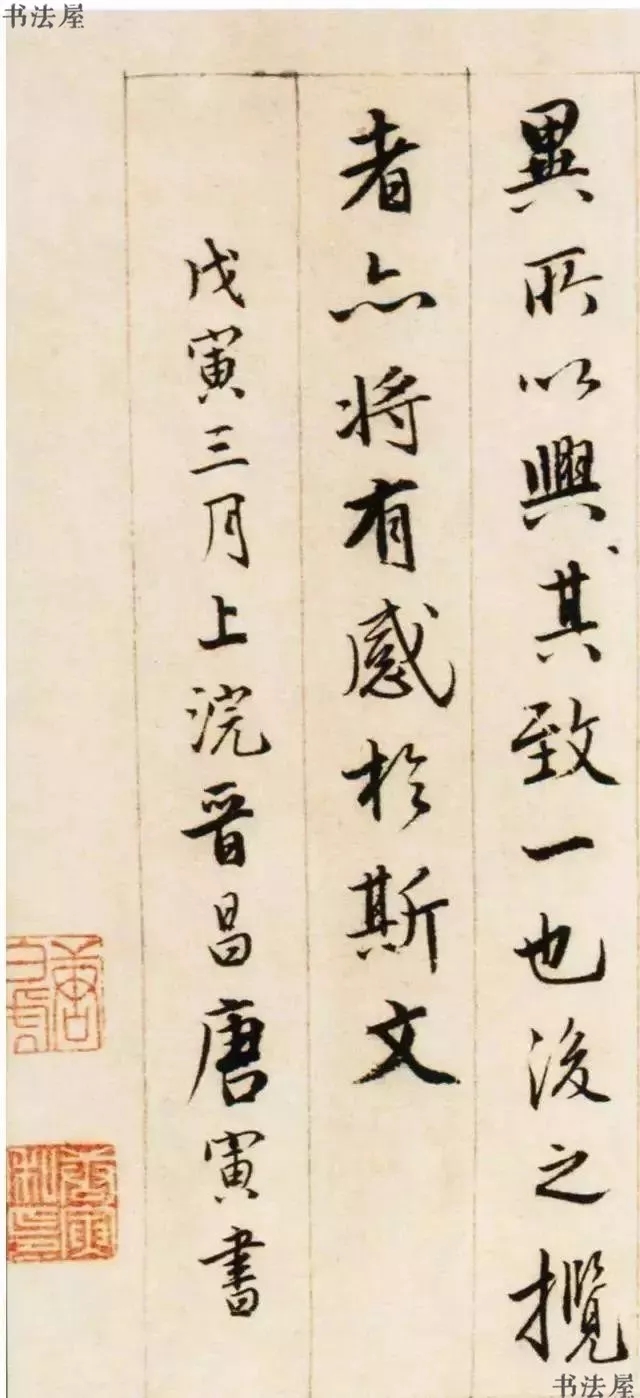 书法屋
異所以興其致一也後之攬
者亦將有感於斯文
戊寅三月上浣晉昌唐寅書
唐伯虎
唐寅私印
书法屋